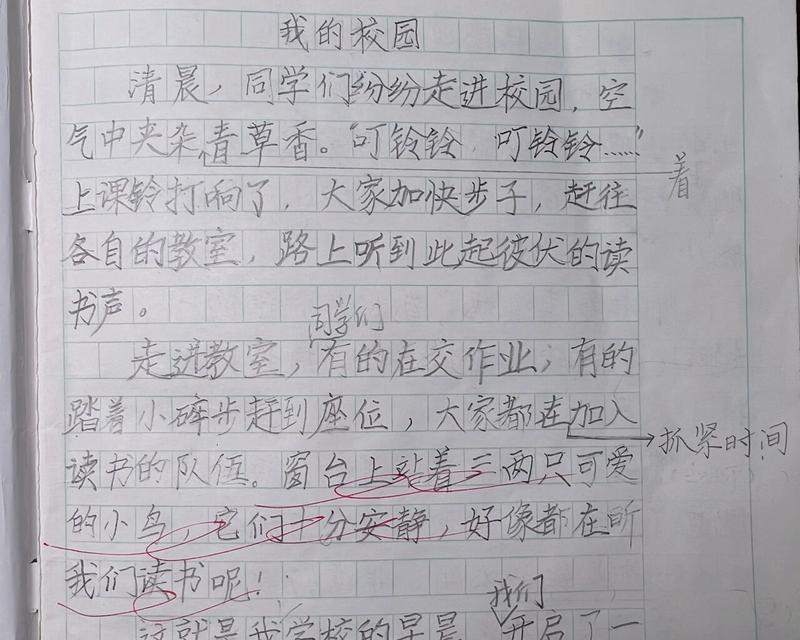 我的校园
清晨，同学们纷纷走进校园，空
气中夹杂青草香。“叮铃铃 叮铃铃……”
着
上课铃打响了，大家加快步子，赶往
各自的教室，路上听到此起彼伏的读
书声。
同学们
走进教室，有的在交作业；有的
踏着小碎步赶到座位，大家都在加入
抓紧时间
读书的队伍。窗台上站着三两只可爱
的小鸟，它们十分安静，好像都在听
我们读书呢！
我们
这就是我学校的早晨 开启了一